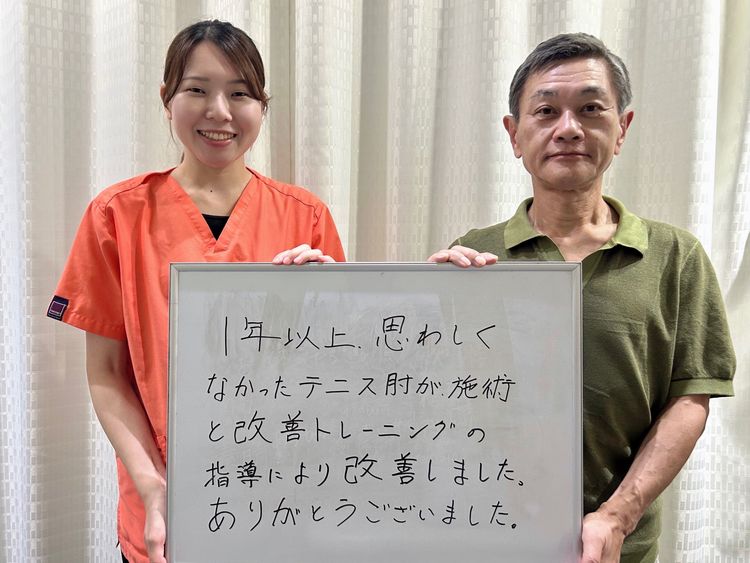 1年以上、思わしく
なかったテニス肘が、施術
と改善トレーニングの
指導により改善しました。
ありがとうございました。